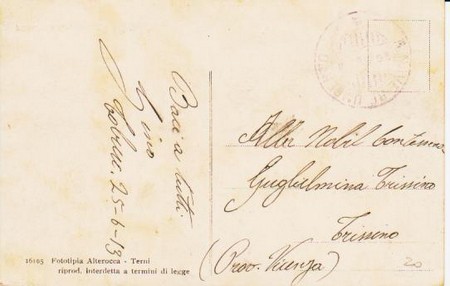 Baci a tutti
Gino
Tobruc. 25-6-13
Alla Nobil Contessina
Guglielmina Trissino
Trissino
(Prov. Vicenza)
20
16105 Fototipia Alterocca - Terni
riprod. interdetta a termini di legge